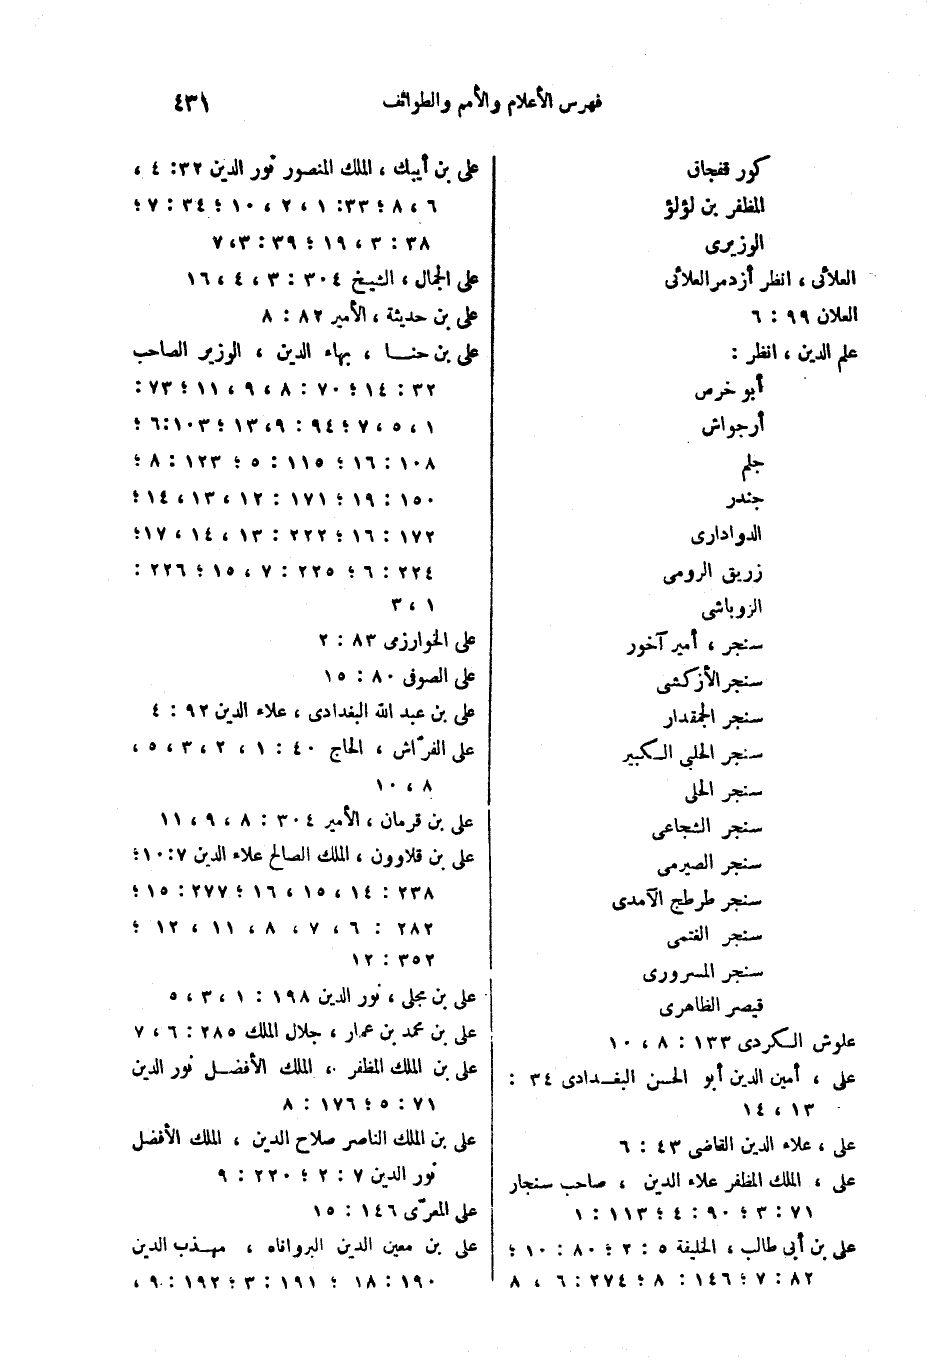 فهرس الأعلام والأمم والطوائف ٤٣١
كور قفجاق
المظفر بن لؤلؤ
الوزيرى
العلائى ، انظر أزدمر العلائى
العلان ٩٩ : ٦
علم الدين ، انظر :
أبو خرص
أرجواش
جلم
جندر
الدوادارى
زريق الرومى
الزوباشى
سنجر ، أمير آخور
سنجر الأزكشى
سنجر الجمقدار
سنجر الحلبى الكبير
سنجر الحلى
سنجر الشجاعى
سنجر الصيرمى
سنجر طرطج الآمدى
سنجر الغتمى
سنجر المسرورى
قيصر الظاهرى
علوش الكردى ١٣٣ : ٨ ، ١٠
على ، أمين الدين أبو الحسن البغدادى ٣٤ :
١٣ ، ١٤
على ، علاء الدين القاضى ٤٣ : ٦
على ، الملك المظفر علاء الدين ، صاحب سنجار
٧١ : ٣ ؛ ٩٠ : ٤ ؛ ١١٣ : ١
على بن أبى طالب ، الخليفة ٥ : ٢ ؛ ٨٠ : ١٠ ؛
٨٢ : ٧ ؛ ١٤٦ : ٨ ؛ ٢٧٤ : ٦ ، ٨
على بن أيبك ، الملك المنصور نور الدين ٣٢ : ٤ ،
٦ ، ٨ ؛ ٣٣ : ١ ، ٢ ، ١٠ ؛ ٣٤ : ٧ ؛
٣٨ : ٣ ، ١٩ ؛ ٣٩ : ٣ ، ٧
على الجمال ، الشيخ ٣٠٤ : ٣ ، ٤ ، ١٦
على بن حديثة ، الأمير ٨٢ : ٨
على بن حنا ، بهاء الدين ، الوزير الصاحب
٣٢ : ١٤ ؛ ٧٠ : ٨ ، ٩ ، ١١ ؛ ٧٣ :
١ ، ٥ ، ٧ ؛ ٩٤ : ٩ ، ١٣ ؛ ١٠٣ : ٦ ؛
١٠٨ : ١٦ ؛ ١١٥ : ٥ ؛ ١٢٣ : ٨ ؛
١٥٠ : ١٩ ؛ ١٧١ : ١٢ ، ١٣ ، ١٤ ؛
١٧٢ : ١٦ ؛ ٢٢٢ : ١٣ ، ١٤ ، ١٧ ؛
٢٢٤ : ٦ ؛ ٢٢٥ : ٧ ، ١٥ ؛ ٢٢٦ :
١ ، ٣
على الخوارزمى ٨٣ : ٢
على الصوفى ٨٠ : ١٥
على بن عبد الله البغدادى ، علاء الدين ٩٢ : ٤
على الفرّاش ، الحاج ٤٠ : ١ ، ٢ ، ٣ ، ٥ ،
٨ ، ١٠
على بن قرمان ، الأمير ٣٠٤ : ٨ ، ٩ ، ١١
على بن قلاوون ، الملك الصالح علاء الدين ٧ : ١٠ ؛
٢٣٨ : ١٤ ، ١٥ ، ١٦ ؛ ٢٧٧ : ١٥ ؛
٢٨٢ : ٦ ، ٧ ، ٨ ، ١١ ، ١٢ ؛
٣٥٢ : ١٢
على بن مجلى ، نور الدين ١٩٨ : ١ ، ٣ ، ٥
على بن محمد بن عمار ، جلال الملك ٢٨٥ : ٦ ، ٧
على بن الملك المظفر ، الملك الأفضل نور الدين
٧١ : ٥ ؛ ١٧٦ : ٨
على بن الملك الناصر صلاح الدين ، الملك الأفضل
نور الدين ٧ : ٢ ؛ ٢٢٠ : ٩
على المعرّى ١٤٦ : ١٥
على بن معين الدين البرواناه ، مهذب الدين
١٩٠ : ١٨ ؛ ١٩١ : ٣ ؛ ١٩٢ : ٩ ،